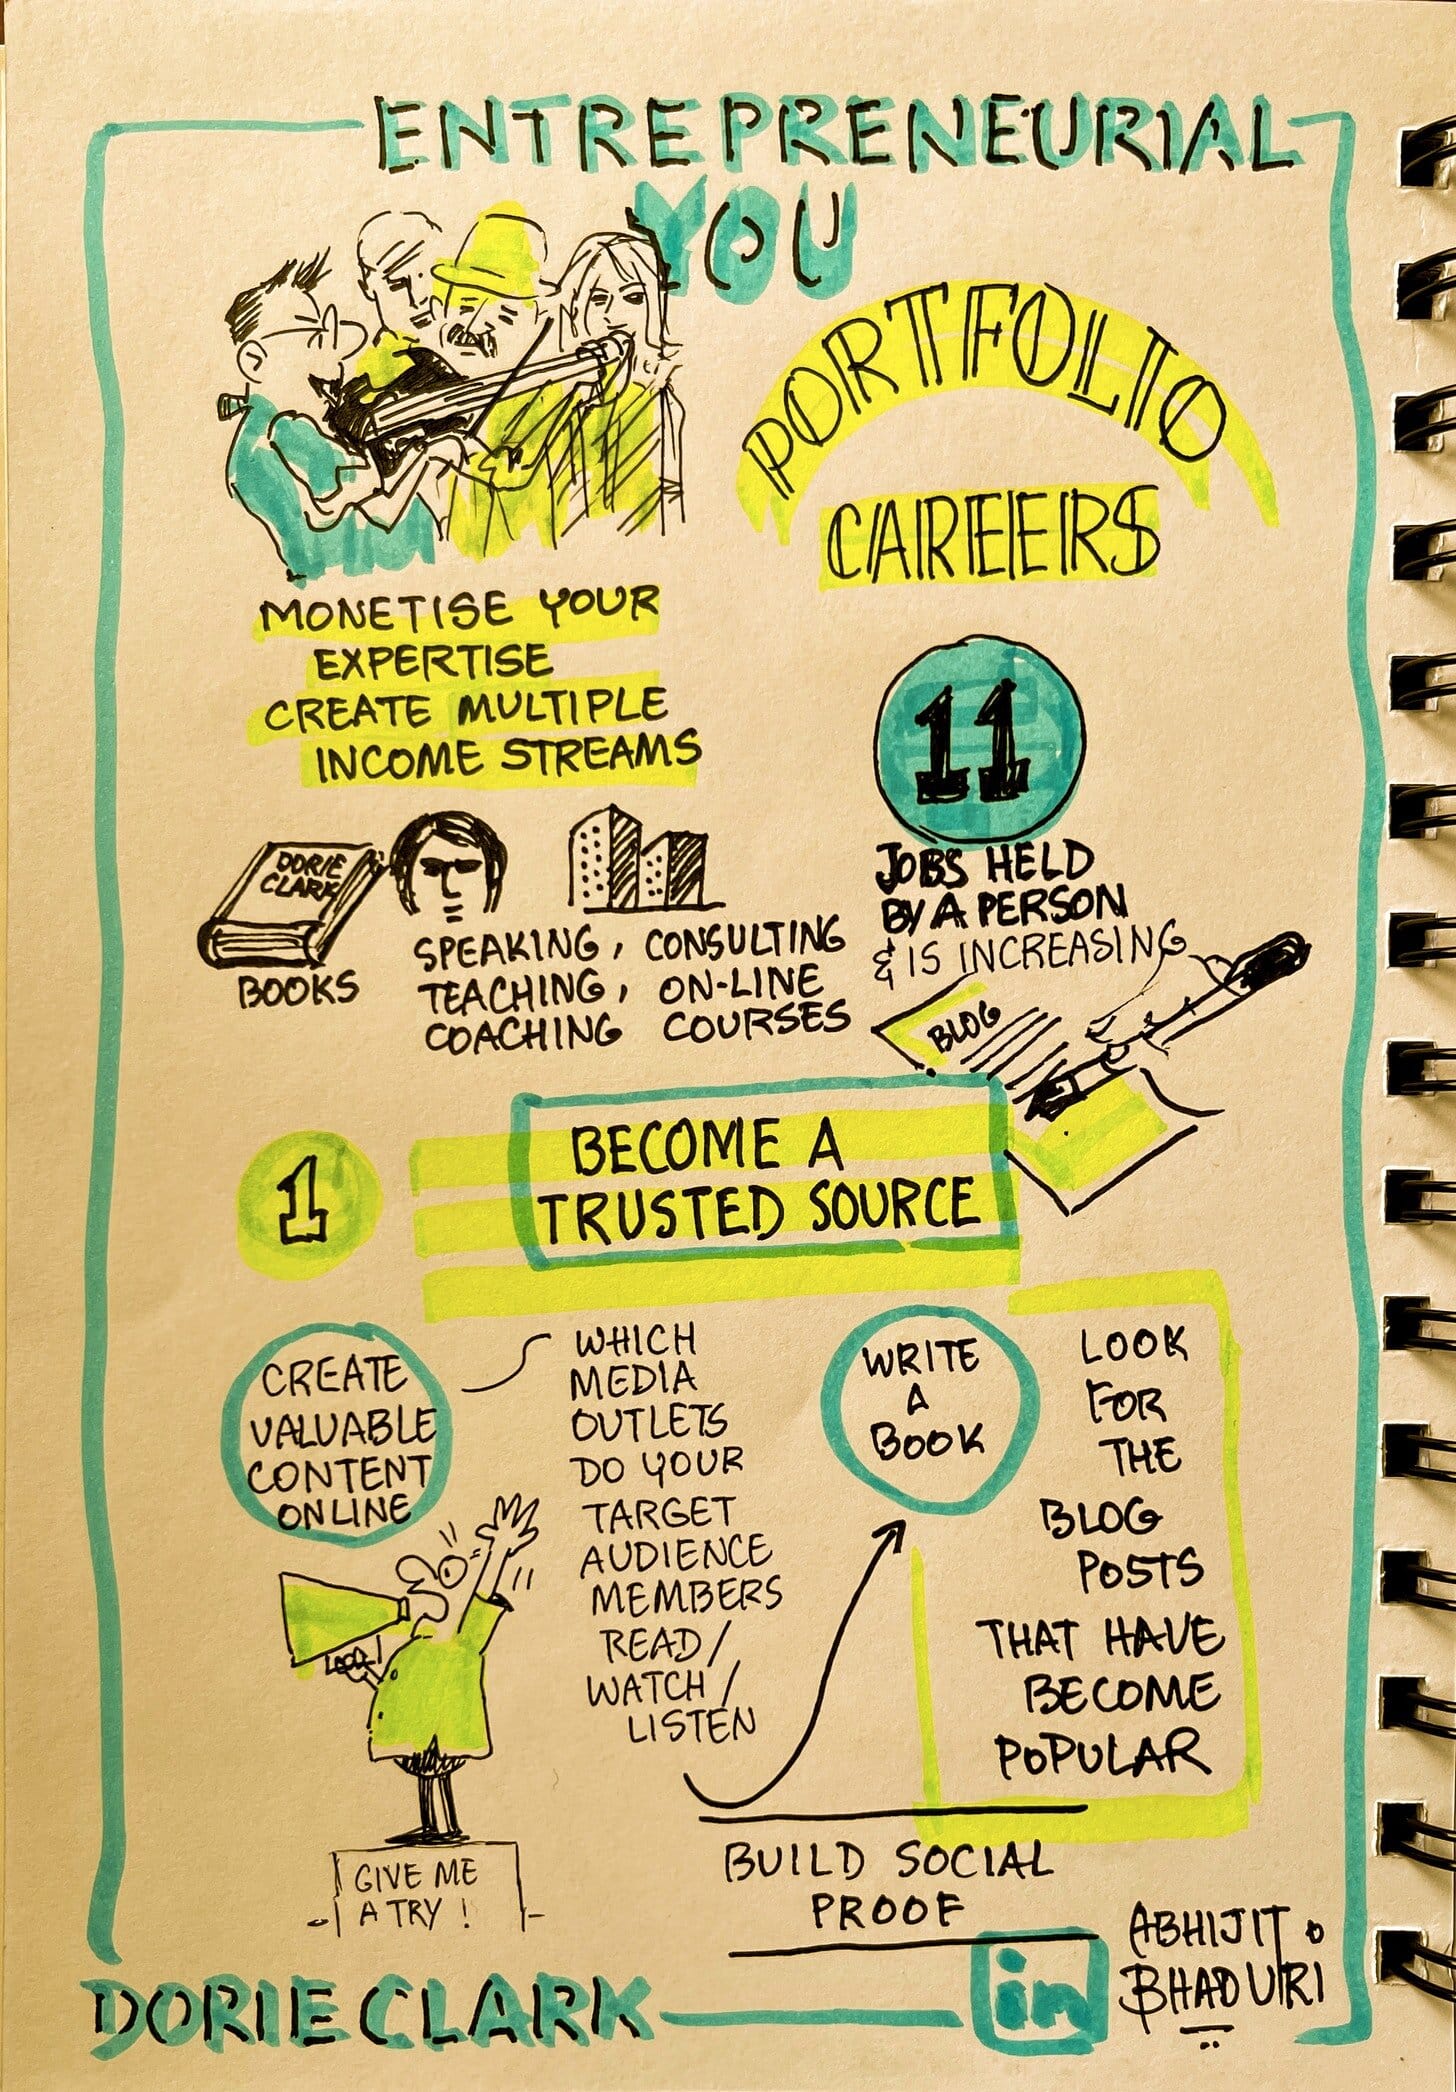 ENTREPRENEURIAL
YOU
PORTFOLIO
CAREERS
MONETISE YOUR
EXPERTISE
CREATE MULTIPLE
INCOME STREAMS
11
JOBS HELD
BY A PERSON
& IS INCREASING
DORIE
CLARK
BOOKS
SPEAKING, CONSULTING
TEACHING, ON-LINE
COACHING COURSES
BLOG
1
BECOME A
TRUSTED SOURCE
CREATE
VALUABLE
CONTENT
ONLINE
WHICH
MEDIA
OUTLETS
DO YOUR
TARGET
AUDIENCE
MEMBERS
READ/
WATCH/
LISTEN
WRITE
A
BOOK
LOOK
FOR
THE
BLOG
POSTS
THAT HAVE
BECOME
POPULAR
GIVE ME
A TRY !
BUILD SOCIAL
PROOF
DORIE CLARK
in
ABHIJIT
BHADURI